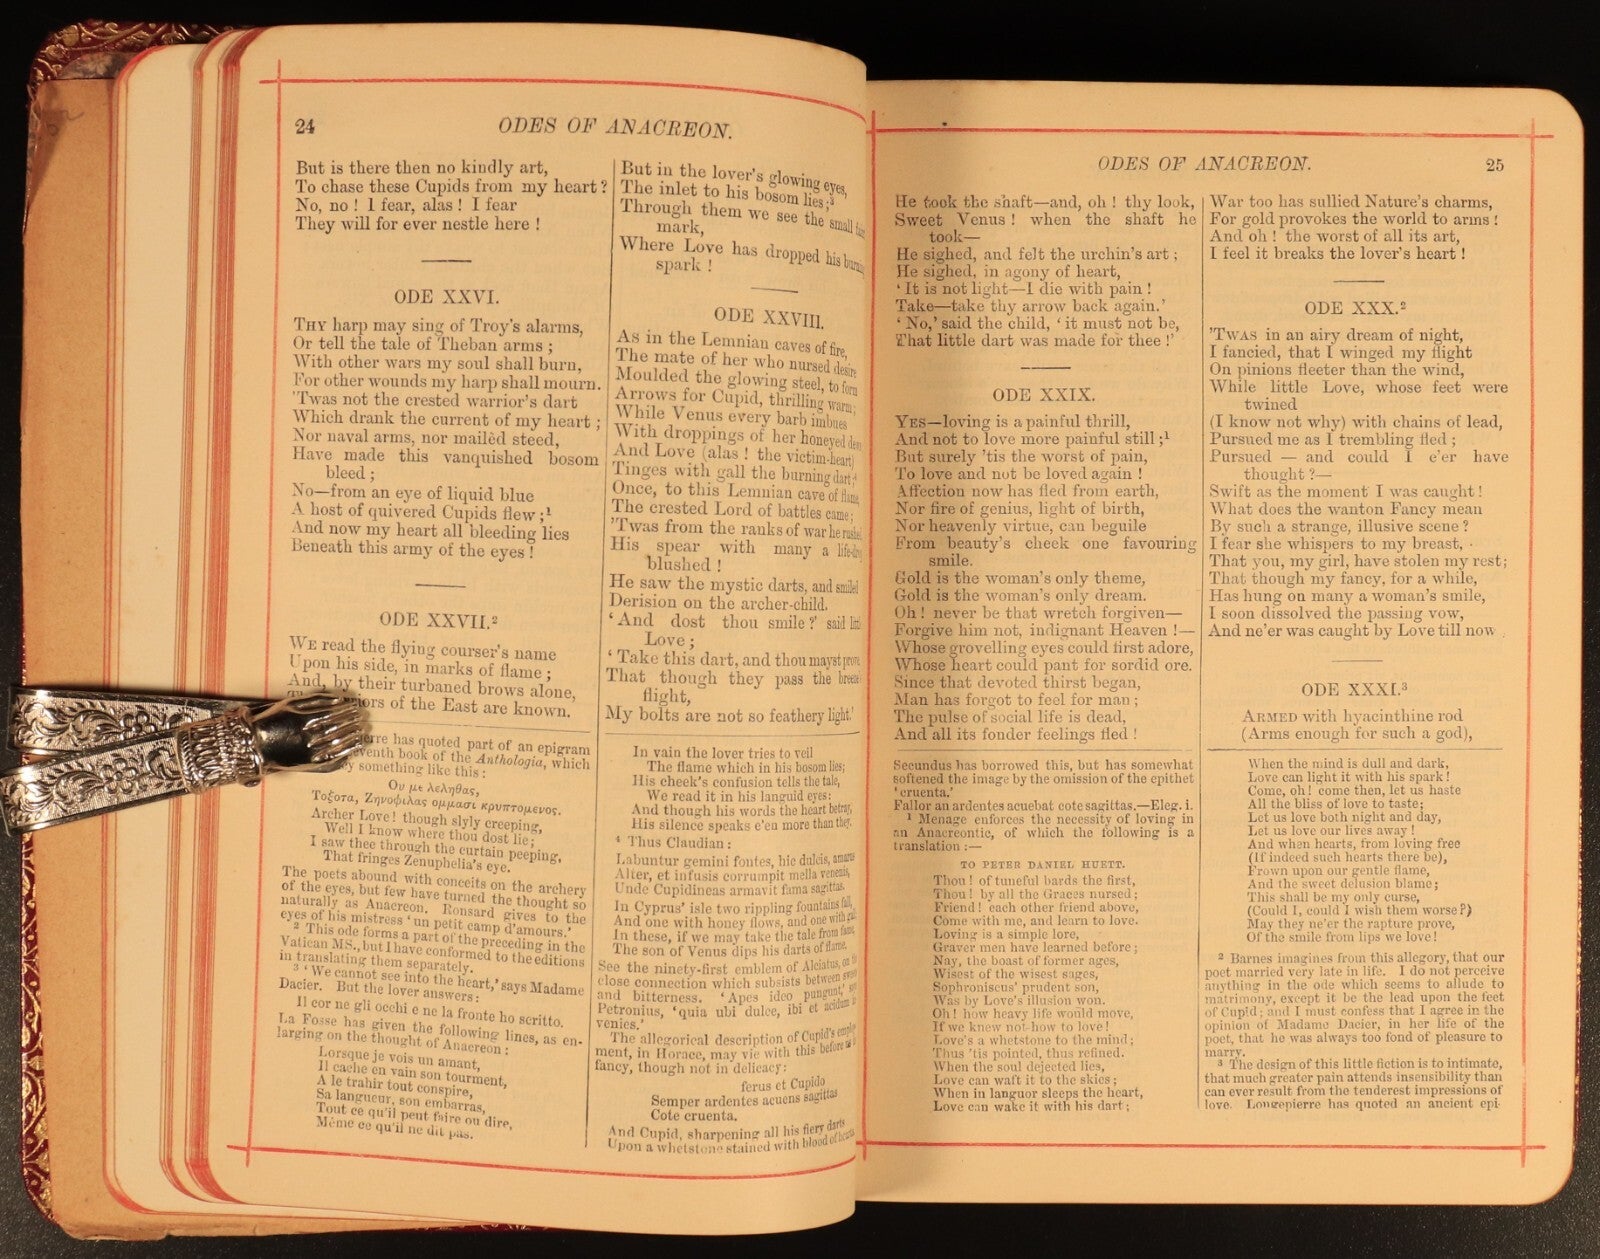 24
ODES OF ANACREON.
But is there then no kindly art,
To chase these Cupids from my heart?
No, no! I fear, alas! I fear
They will for ever nestle here!
ODE XXVI.
THY harp may sing of Troy's alarms,
Or tell the tale of Theban arms;
With other wars my soul shall burn,
For other wounds my harp shall mourn.
'Twas not the crested warrior's dart
Which drank the current of my heart;
Nor naval arms, nor mailèd steed,
Have made this vanquished bosom
bleed;
No—from an eye of liquid blue
A host of quivered Cupids flew;¹
And now my heart all bleeding lies
Beneath this army of the eyes!
ODE XXVII.²
WE read the flying courser's name
Upon his side, in marks of flame;
And, by their turbaned brows alone,
of the East are known.
has quoted part of an epigram
book of the Anthologia, which
something like this:
Ου με λεληθας,
Τοξοτα, Ζηνοφιλας ομμασι κρυπτομενος.
Archer Love! though slyly creeping,
Well I know where thou dost lie;
I saw thee through the curtain peeping,
That fringes Zenuphelia's eye.
The poets abound with conceits on the archery
of the eyes, but few have turned the thought so
naturally as Anacreon. Ronsard gives to the
eyes of his mistress 'un petit camp d'amours.'
² This ode forms a part of the preceding in the
Vatican MS., but I have conformed to the editions
in translating them separately.
³ 'We cannot see into the heart,' says Madame
Dacier. But the lover answers:
Il cor ne gli occhi e ne la fronte ho scritto.
La Fosse has given the following lines, as en-
larging on the thought of Anacreon:
Lorsque je vois un amant,
Il cache en vain son tourment,
A le trahir tout conspire,
Sa langueur, son embarras,
Tout ce qu'il peut faire ou dire,
Même ce qu'il ne dit pas.
But in the lover's glowing eyes,
The inlet to his bosom lies;³
Through them we see the small
mark,
Where Love has dropped his
spark!
ODE XXVIII.
As in the Lemnian caves of fire,
The mate of her who nursed desire
Moulded the glowing steel, to form
Arrows for Cupid, thrilling warm;
While Venus every barb imbues
With droppings of her honeyed
And Love (alas! the victim-heart)
Tinges with gall the burning dart;⁴
Once, to this Lemnian cave of flame,
The crested Lord of battles came;
'Twas from the ranks of war he
His spear with many a
blushed!
He saw the mystic darts, and smiled
Derision on the archer-child.
'And dost thou smile?' said
Love;
'Take this dart, and thou mayst prove,
That though they pass the
flight,
My bolts are not so feathery light.'
In vain the lover tries to veil
The flame which in his bosom lies;
His cheek's confusion tells the tale,
We read it in his languid eyes:
And though his words the heart betray,
His silence speaks e'en more than they.
⁴ Thus Claudian:
Labuntur gemini fontes, hic dulcis, amarus
Alter, et infusis corrumpit mella venenis,
Unde Cupidineas armavit fama sagittas.
In Cyprus' isle two rippling fountains fall,
And one with honey flows, and one with gall;
In these, if we may take the tale from fame,
The son of Venus dips his darts of flame.
See the ninety-first emblem of Alciatus, on
close connection which subsists between sweets
and bitterness. 'Apes ideo pungunt,'
Petronius, 'quia ubi dulce, ibi et acidum
venies.'
The allegorical description of Cupid's
ment, in Horace, may vie with this before
fancy, though not in delicacy:
ferus et Cupido
Semper ardentes acuens sagittas
Cote cruenta.
And Cupid, sharpening all his fiery darts
Upon a whetstone stained with blood of hearts
ODES OF ANACREON.
25
He took the shaft—and, oh! thy look,
Sweet Venus! when the shaft he
took—
He sighed, and felt the urchin's art;
He sighed, in agony of heart,
'It is not light—I die with pain!
Take—take thy arrow back again.'
'No,' said the child, 'it must not be,
That little dart was made for thee!'
ODE XXIX.
YES—loving is a painful thrill,
And not to love more painful still;¹
But surely 'tis the worst of pain,
To love and not be loved again!
Affection now has fled from earth,
Nor fire of genius, light of birth,
Nor heavenly virtue, can beguile
From beauty's cheek one favouring
smile.
Gold is the woman's only theme,
Gold is the woman's only dream.
Oh! never be that wretch forgiven—
Forgive him not, indignant Heaven!—
Whose grovelling eyes could first adore,
Whose heart could pant for sordid ore.
Since that devoted thirst began,
Man has forgot to feel for man;
The pulse of social life is dead,
And all its fonder feelings fled!
Secundus has borrowed this, but has somewhat
softened the image by the omission of the epithet
'cruenta.'
Fallor an ardentes acuebat cote sagittas.—Eleg. i.
¹ Menage enforces the necessity of loving in
an Anacreontic, of which the following is a
translation:—
TO PETER DANIEL HUETT.
Thou! of tuneful bards the first,
Thou! by all the Graces nursed;
Friend! each other friend above,
Come with me, and learn to love.
Loving is a simple lore,
Graver men have learned before;
Nay, the boast of former ages,
Wisest of the wisest sages,
Sophroniscus' prudent son,
Was by Love's illusion won.
Oh! how heavy life would move,
If we knew not how to love!
Love's a whetstone to the mind;
Thus 'tis pointed, thus refined.
When the soul dejected lies,
Love can waft it to the skies;
When in languor sleeps the heart,
Love can wake it with his dart;
War too has sullied Nature's charms,
For gold provokes the world to arms!
And oh! the worst of all its art,
I feel it breaks the lover's heart!
ODE XXX.²
'TWAS in an airy dream of night,
I fancied, that I winged my flight
On pinions fleeter than the wind,
While little Love, whose feet were
twined
(I know not why) with chains of lead,
Pursued me as I trembling fled;
Pursued — and could I e'er have
thought?—
Swift as the moment I was caught!
What does the wanton Fancy mean
By such a strange, illusive scene?
I fear she whispers to my breast,
That you, my girl, have stolen my rest;
That though my fancy, for a while,
Has hung on many a woman's smile,
I soon dissolved the passing vow,
And ne'er was caught by Love till now.
ODE XXXI.³
ARMED with hyacinthine rod
(Arms enough for such a god),
When the mind is dull and dark,
Love can light it with his spark!
Come, oh! come then, let us haste
All the bliss of love to taste;
Let us love both night and day,
Let us love our lives away!
And when hearts, from loving free
(If indeed such hearts there be),
Frown upon our gentle flame,
And the sweet delusion blame;
This shall be my only curse,
(Could I, could I wish them worse?)
May they ne'er the rapture prove,
Of the smile from lips we love!
² Barnes imagines from this allegory, that our
poet married very late in life. I do not perceive
anything in the ode which seems to allude to
matrimony, except it be the lead upon the feet
of Cupid; and I must confess that I agree in the
opinion of Madame Dacier, in her life of the
poet, that he was always too fond of pleasure to
marry.
³ The design of this little fiction is to intimate,
that much greater pain attends insensibility than
can ever result from the tenderest impressions of
love. Longepierre has quoted an ancient epi-